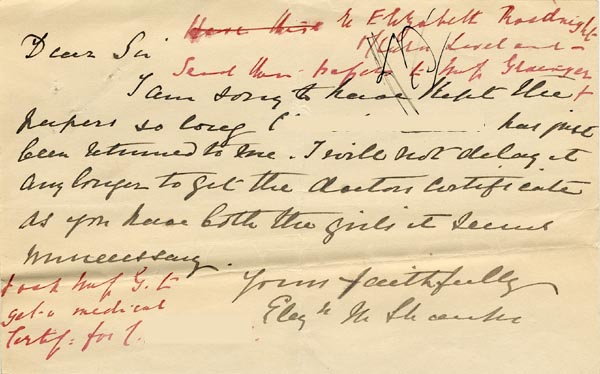 Elizabeth
Dear Sir
Send these papers to Miss Grainger &
I am sorry to have kept the
papers so long C has just
been returned to me. I will not delay it
any longer to get the doctors certificate
as you have both the girls it seems
unnecessary.
to ask Miss G. to
get a medical
Certif: for C.
Yours faithfully
M